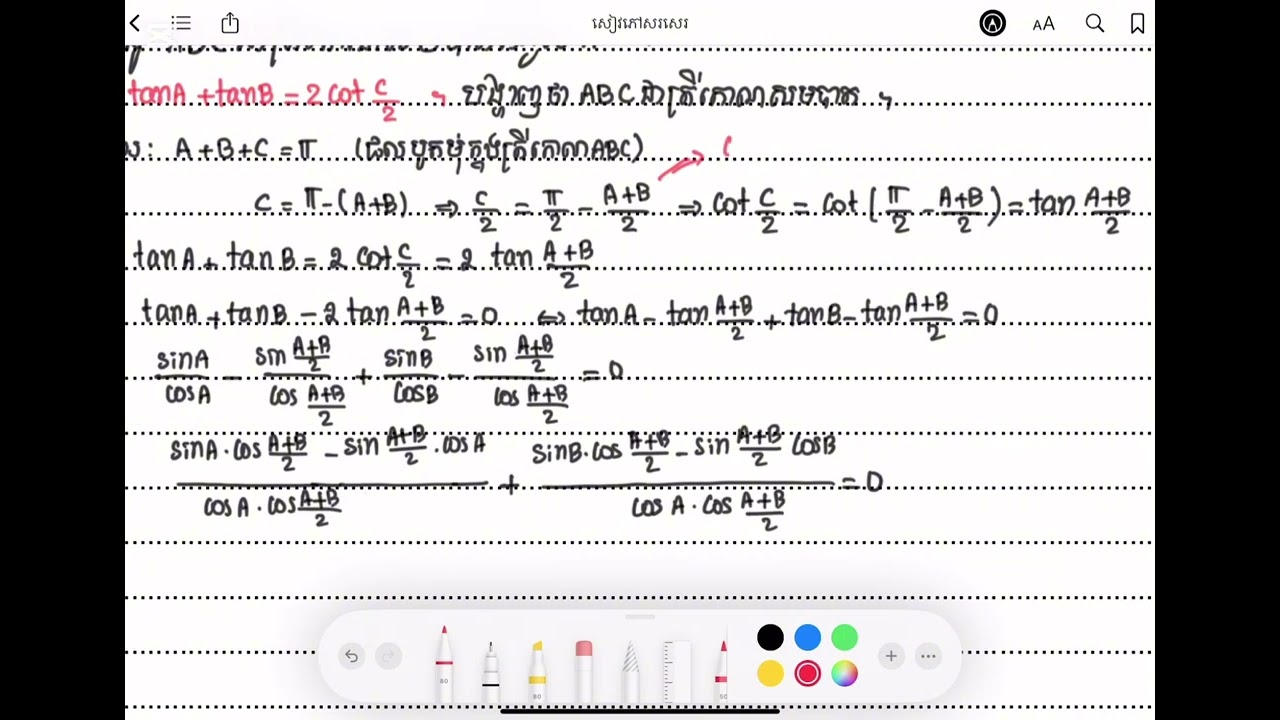 សៀវភៅសរសេរ
AA
tanA + tanB = 2 cot C/2 ។ បង្ហាញថា ABC ជាត្រីកោណសមបាត ។
A + B + C = π (ផលបូកមុំក្នុងត្រីកោណ ABC)
C = π - (A+B) ⇒ C/2 = π/2 - A+B/2 ⇒ cot C/2 = cot (π/2 - A+B/2) = tan A+B/2
tanA + tanB = 2 cot C/2 = 2 tan A+B/2
tanA + tanB - 2 tan A+B/2 = 0 ⇔ tanA - tan A+B/2 + tanB - tan A+B/2 = 0
sinA/cosA - sin A+B/2 / cos A+B/2 + sinB/cosB - sin A+B/2 / cos A+B/2 = 0
sinA · cos A+B/2 - sin A+B/2 · cosA / cosA · cos A+B/2 + sinB · cos A+B/2 - sin A+B/2 cosB / cosA · cos A+B/2 = 0
80
80
50